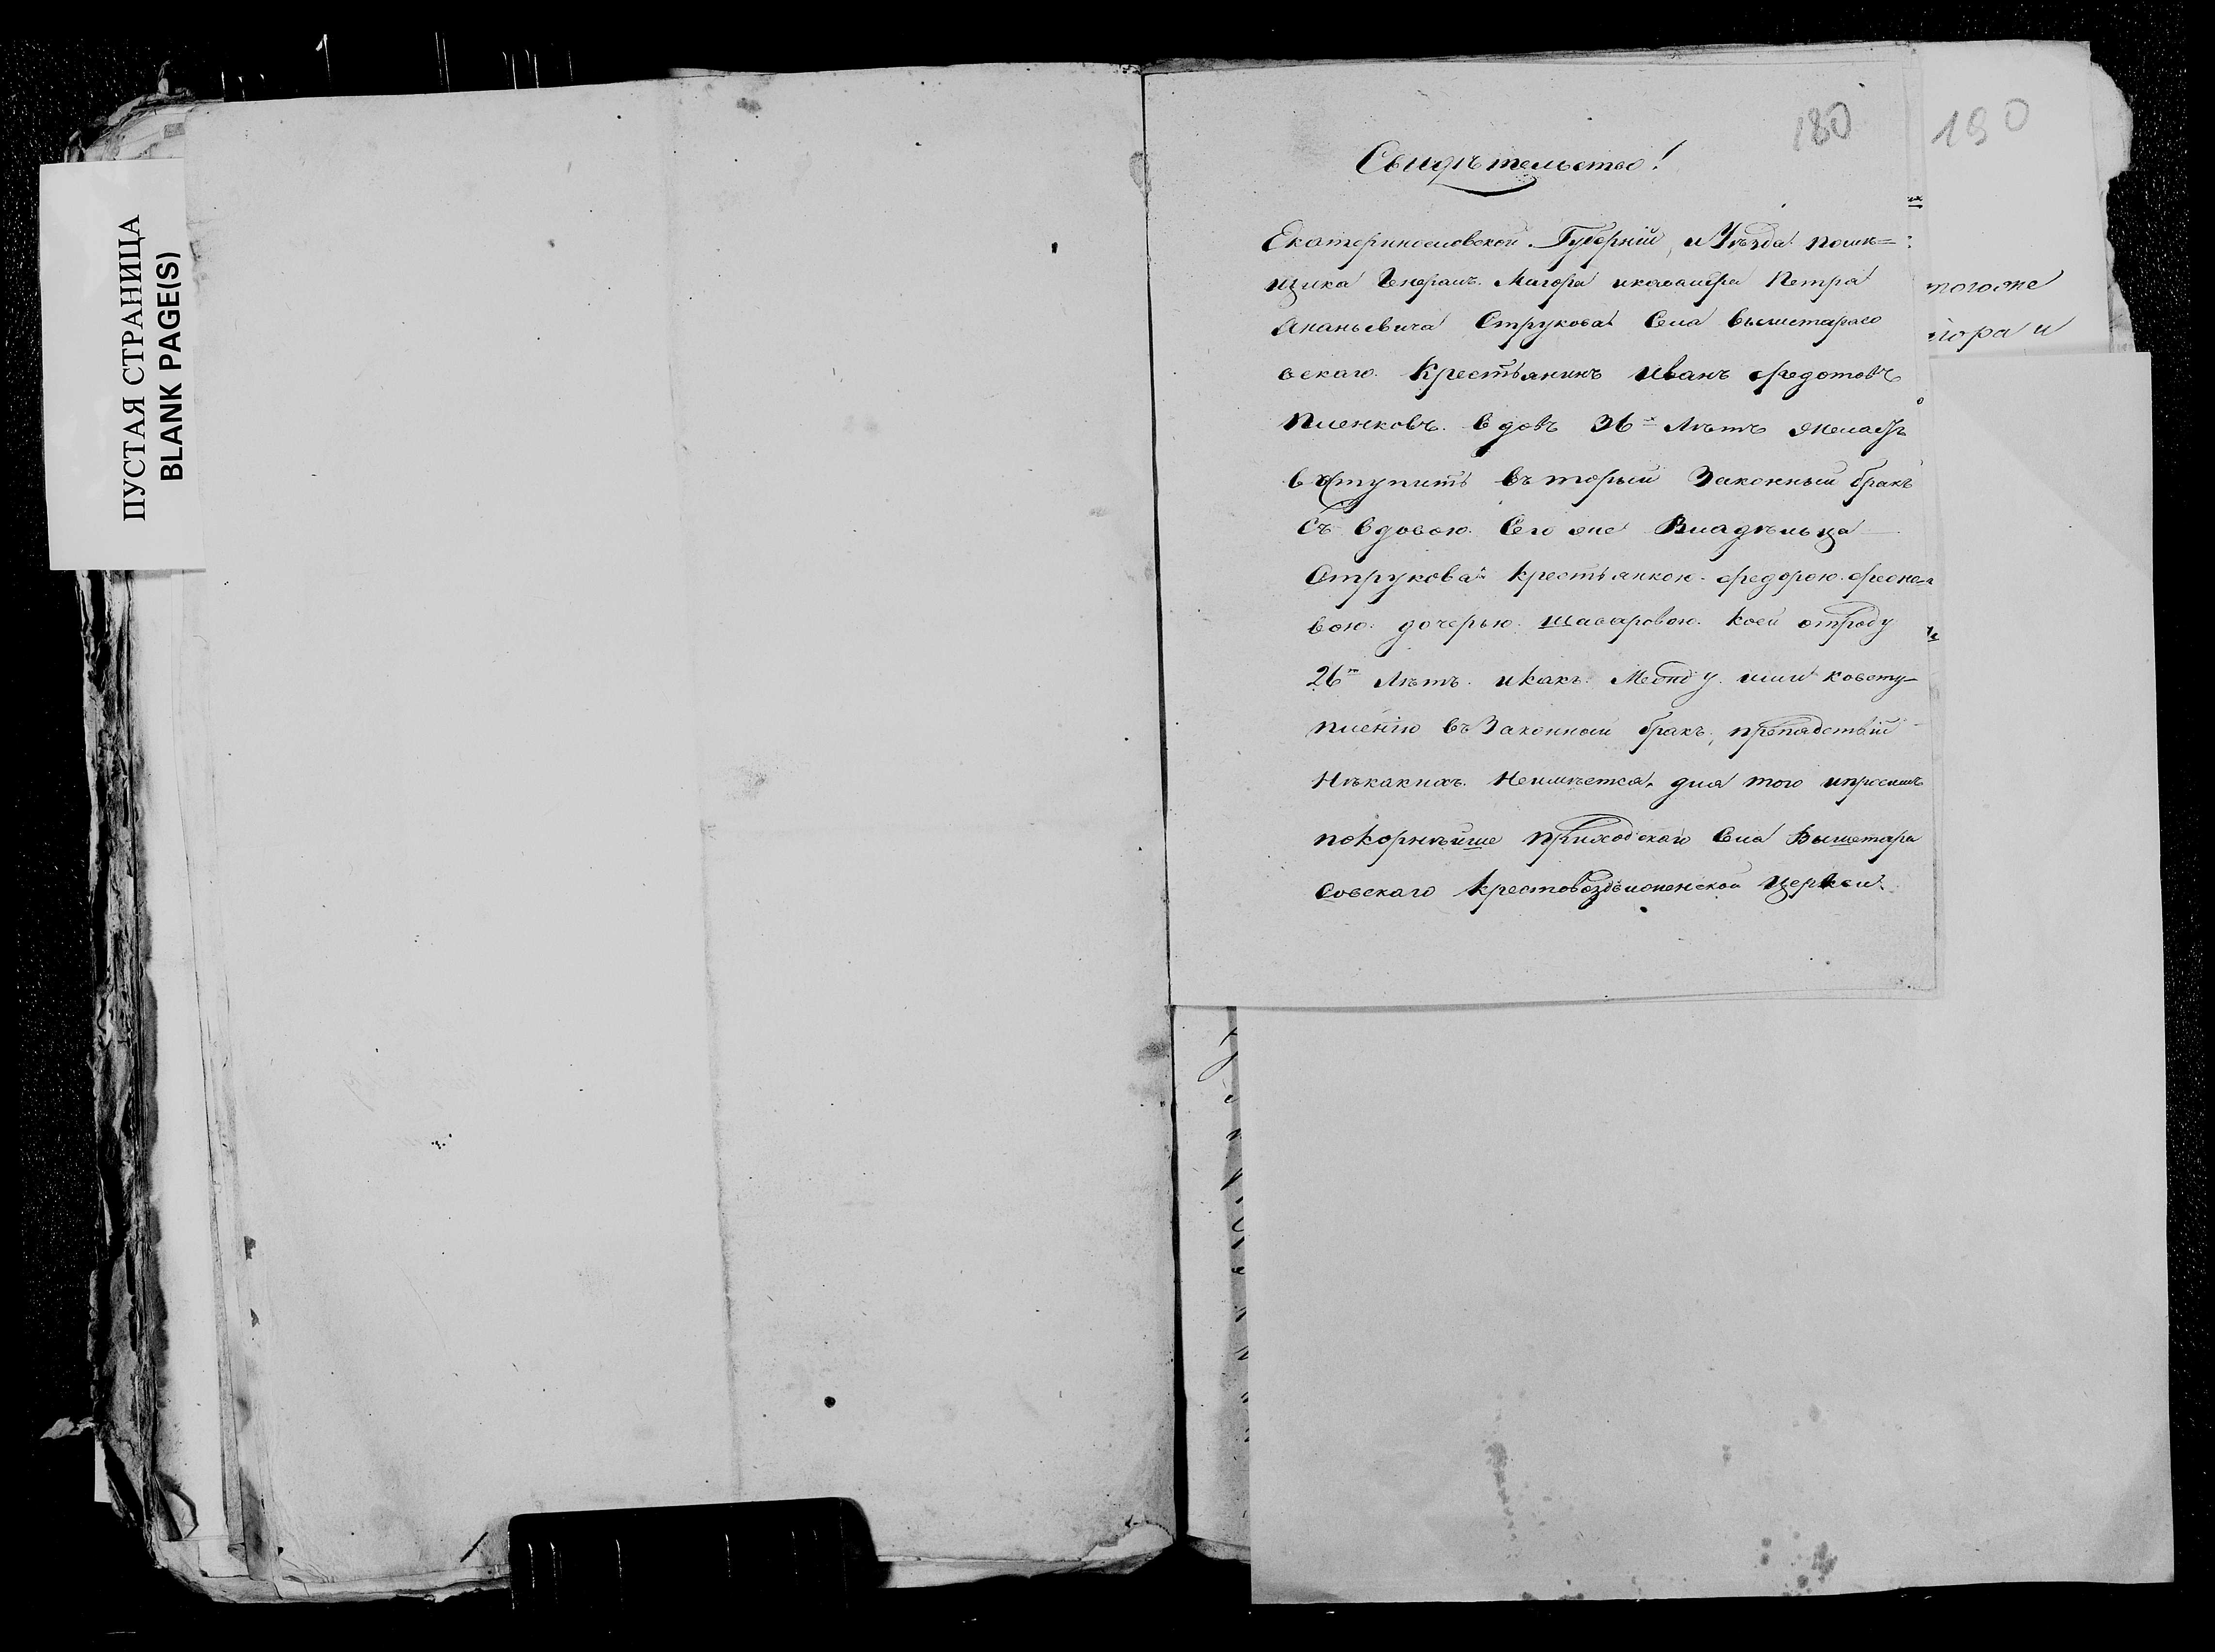 ПУСТАЯ СТРАНИЦА
BLANK PAGE(S)
180
190
Свидѣтельство!
Екатеринославской Губерніи, и Уѣзда помѣ=
щика Генералъ Маіора икавалера Петра
Ананьевича Струкова Села вышетарасо
вскаго Крестьянинъ иванъ федотовъ
Пленковъ вдовъ 36 х Лѣтъ желаетъ
вступить въ торый Законный бракъ
Съ вдовою Его же Владѣльца
Струкова крестьянкою федорою
вою дочерью шаваровою коей отроду
26 ть Лѣтъ икакъ Между ими ковсту-
пленію въ Законный бракъ, препядствій
Нѣкакихъ Неимѣется, для того ипросимъ
покорнѣйше приходскаго Села Вышетара
совскаго крестовоздвиженской Церкви
тогоже
іора и